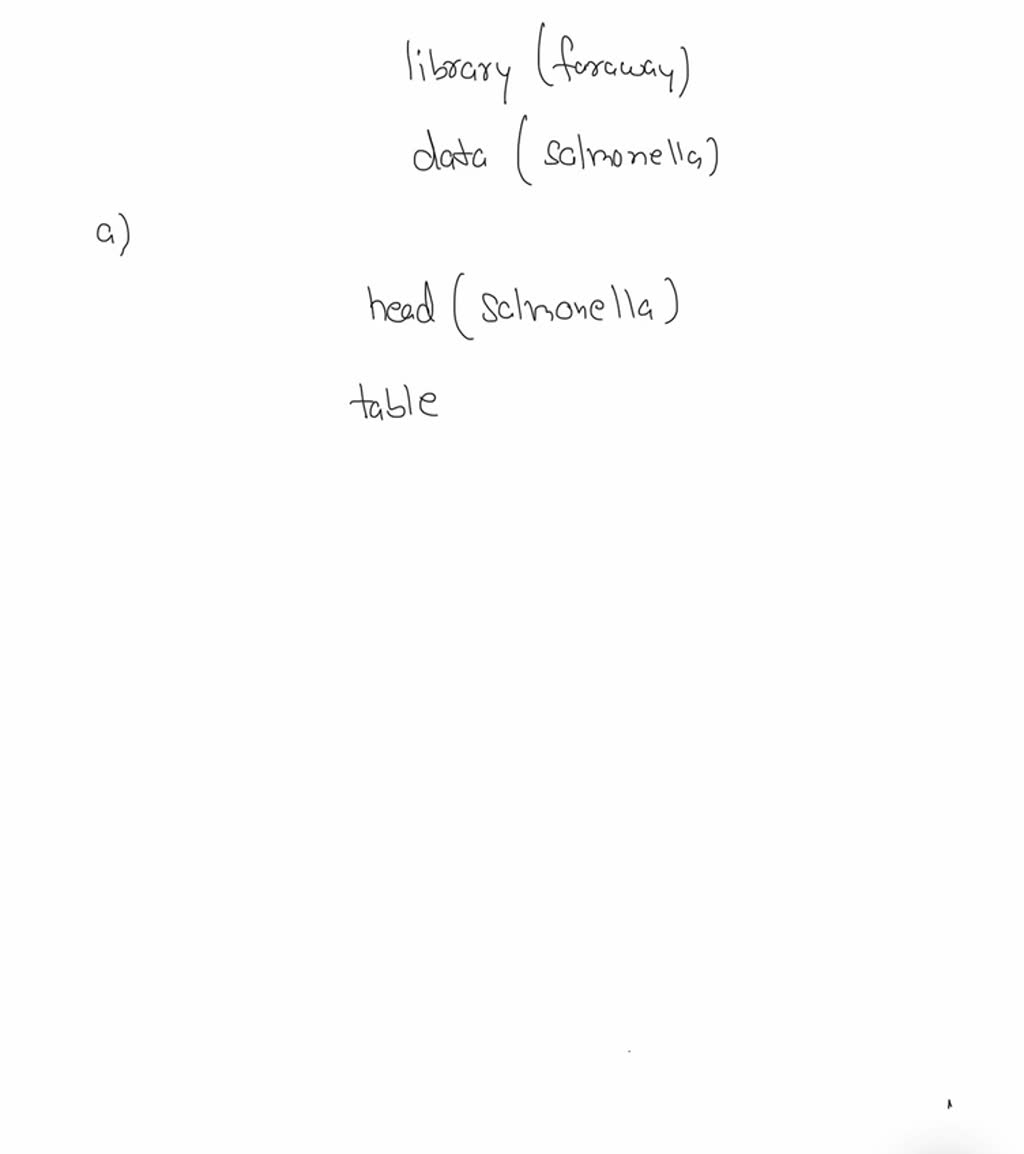 library (faraway)
data (salmonella)
a)
head (salmonella)
table